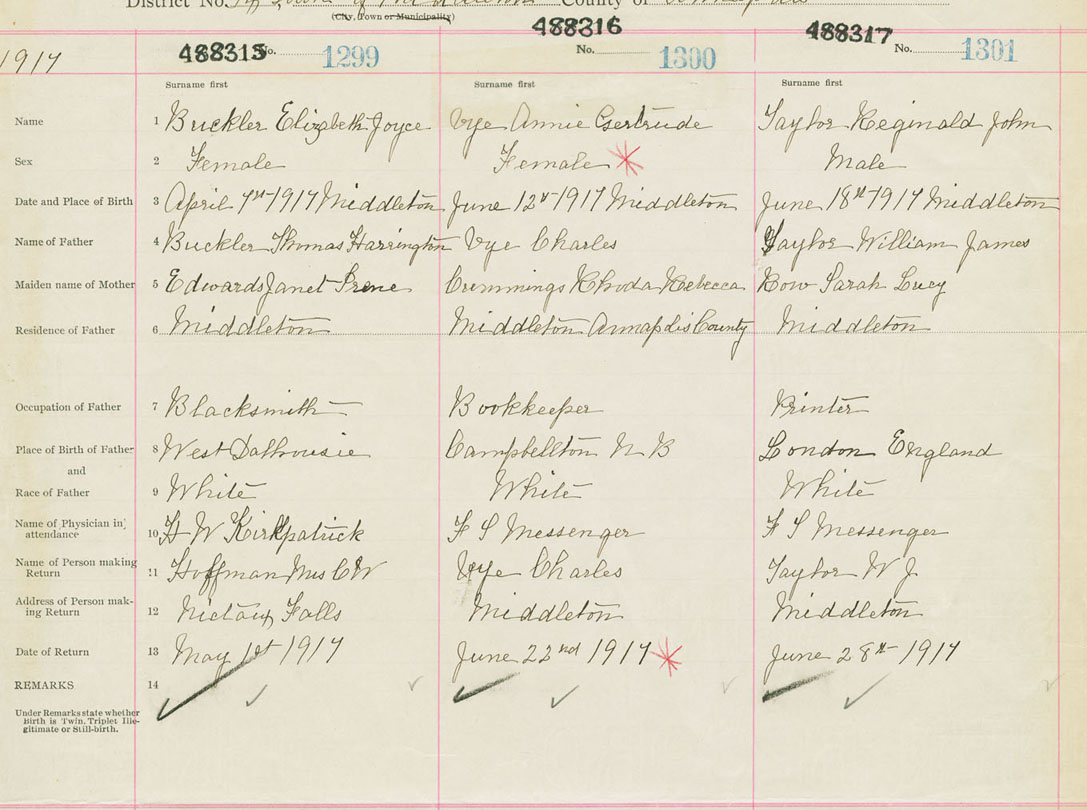 District No. Town of Middleton County of Annapolis
(City, Town or Municipality)
1917
488315 No. 1299
488316 No. 1300
488317 No. 1301
Surname first Surname first Surname first
Name 1 Buckler Elizabeth Joyce Vye Annie Gertrude Taylor Reginald John
Sex 2 Female Female Male
Date and Place of Birth 3 April 7th 1917 Middleton June 12th 1917 Middleton June 18th 1917 Middleton
Name of Father 4 Buckler Thomas Harrington Vye Charles Taylor William James
Maiden name of Mother 5 Edwards Janet Irene Cummings Rhoda Rebecca Bow Sarah Lucy
Residence of Father 6 Middleton Middleton Annapolis County Middleton
Occupation of Father 7 Blacksmith Bookkeeper Printer
Place of Birth of Father 8 West Dalhousie Campbellton N B London England
and
Race of Father 9 White White White
Name of Physician in attendance 10 H W Kirkpatrick F S Messenger F S Messenger
Name of Person making Return 11 Hoffman Mrs C W Vye Charles Taylor W J
Address of Person making Return 12 Nictaux Falls Middleton Middleton
Date of Return 13 May 1st 1917 June 22nd 1917 June 28th 1917
REMARKS 14
Under Remarks state whether
Birth is Twin, Triplet Ille-
gitimate or Still-birth.